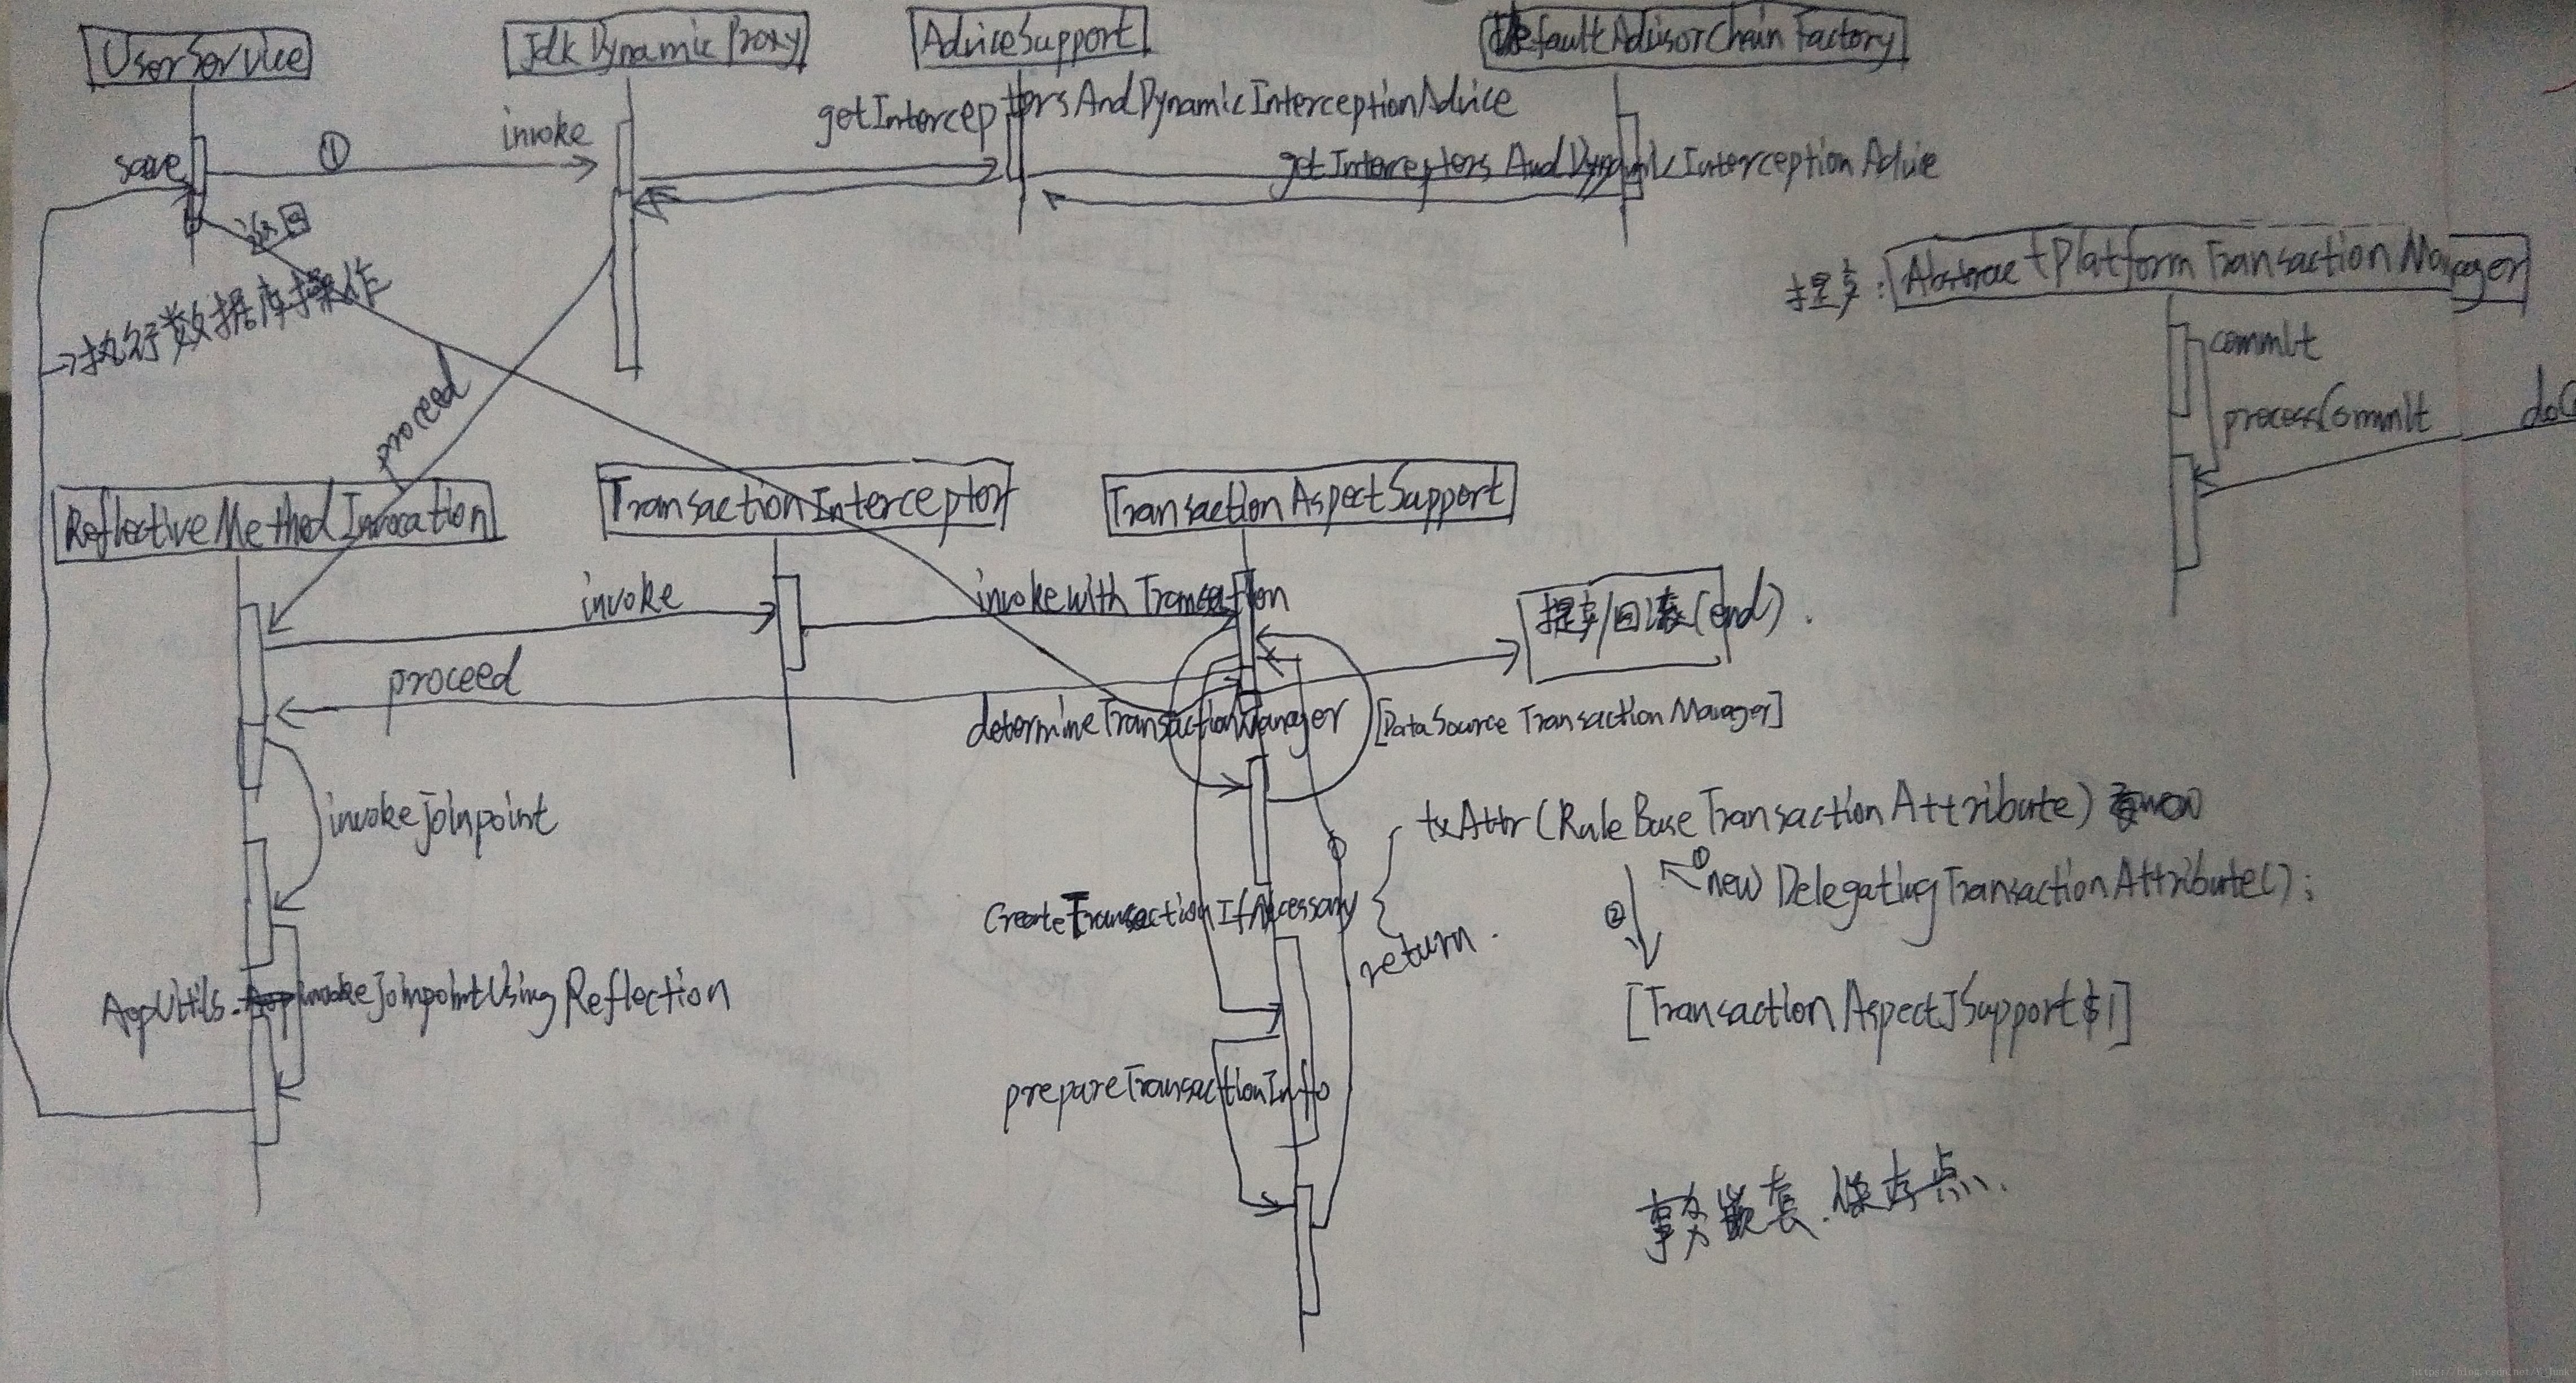 UserService
JdkDynamicProxy
AdviceSupport
DefaultAdvisorChainFactory
getInterceptorsAndDynamicInterceptionAdvice
invoke
①
save
getInterceptorsAndDynamicInterceptionAdvice
返回
→执行数据库操作
提交:
AbstractPlatformTransactionManager
commit
processCommit
doC
proceed
ReflectiveMethodInvocation
TransactionInterceptor
TransactionAspectSupport
invoke
invokeWithTransaction
提交/回滚(end).
proceed
determineTransactionManager
[DataSourceTransactionManager]
invokeJoinpoint
txAttr(RuleBaseTransactionAttribute)
①
new DelegatingTransactionAttribute();
②
CreateTransactionIfNecessary
return.
AopUtils.invokeJoinpointUsingReflection
[TransactionAspectJSupport$1]
prepareTransactionInfo
事务嵌套.保存点、